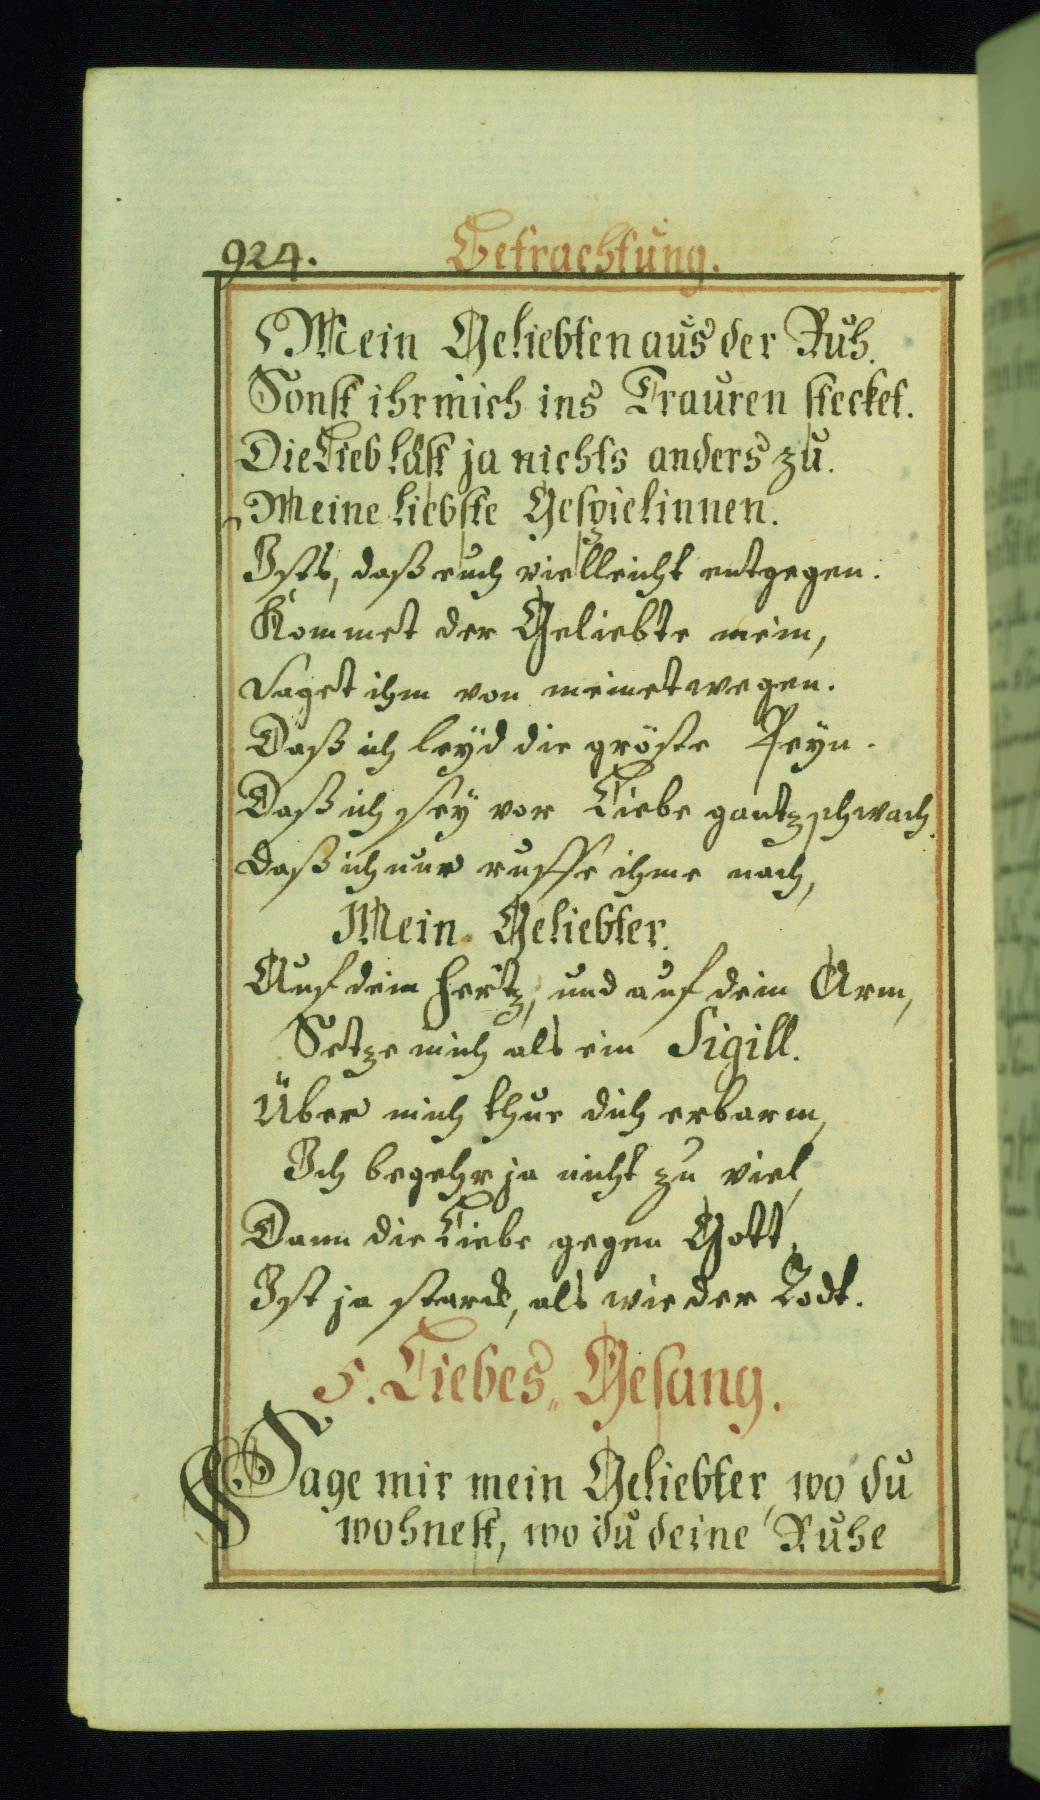 924. Betrachtung.
Mein Geliebten aus der Ruh.
Sonst ihr mich ins Trauren stecket.
Die Lieb läst ja nichts anders zu.
Meine liebste Gespielinnen.
Ists, daß euch vielleicht entgegen.
Kommet der Geliebte mein,
Saget ihm von meinetwegen.
Daß ich leyd die gröste Peyn.
Daß ich sey vor Liebe gantz schwach.
Daß ich nur ruffe ihme nach,
Mein Geliebter.
Auf dein Hertz, und auf dein Arm,
Setze mich als ein Sigill.
Über mich thue dich erbarm,
Ich begehr ja nicht zu viel,
Dann die Liebe gegen Gott,
Ist ja starck, als wie der Todt.
5. Liebes„ Gesang.
Sage mir mein Geliebter, wo du
wohnest, wo du deine Ruhe